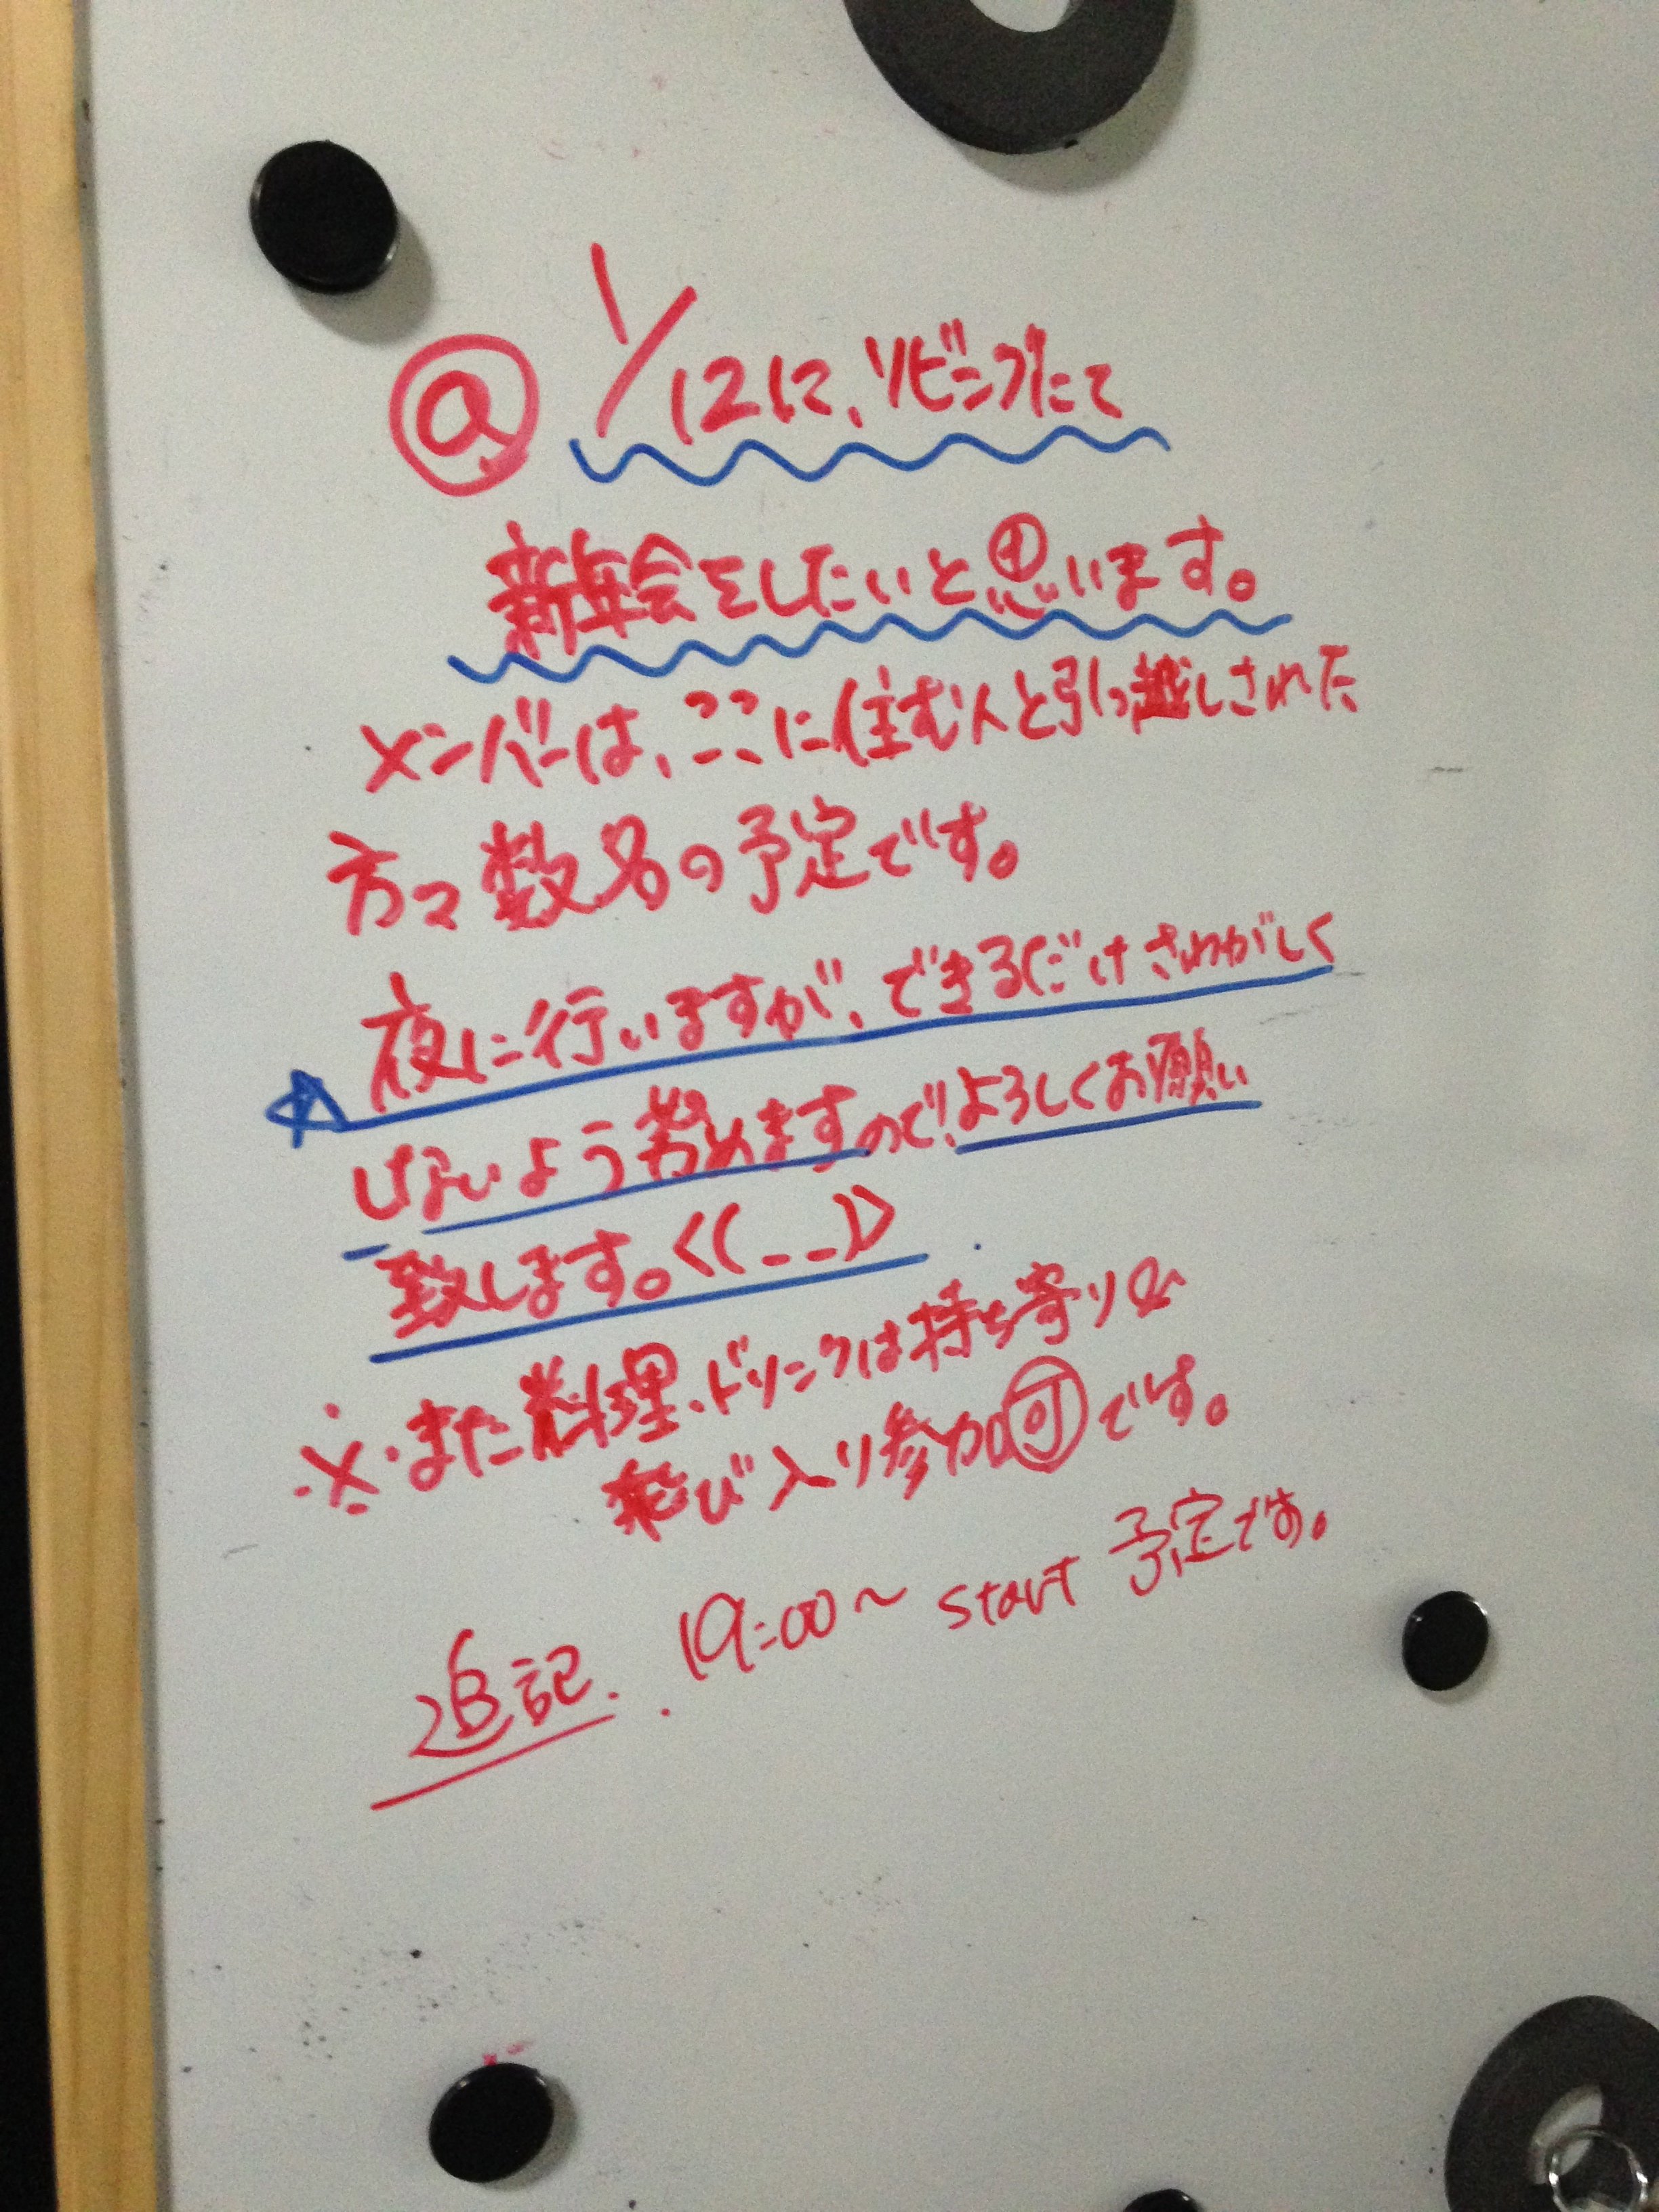 ⓐ 1/12に、リビングにて
新年会をしたいと思います。
メンバーは、ここに住む人と引っ越しされた
方々数名の予定です。
☆夜に行いますが、できるだけさわがしく
しないよう努めますので、よろしくお願い
致します。<(_ _)>
※・また料理、ドリンクは持ち寄り&
飛び入り参加可です。
追記. 19:00～ start 予定です。